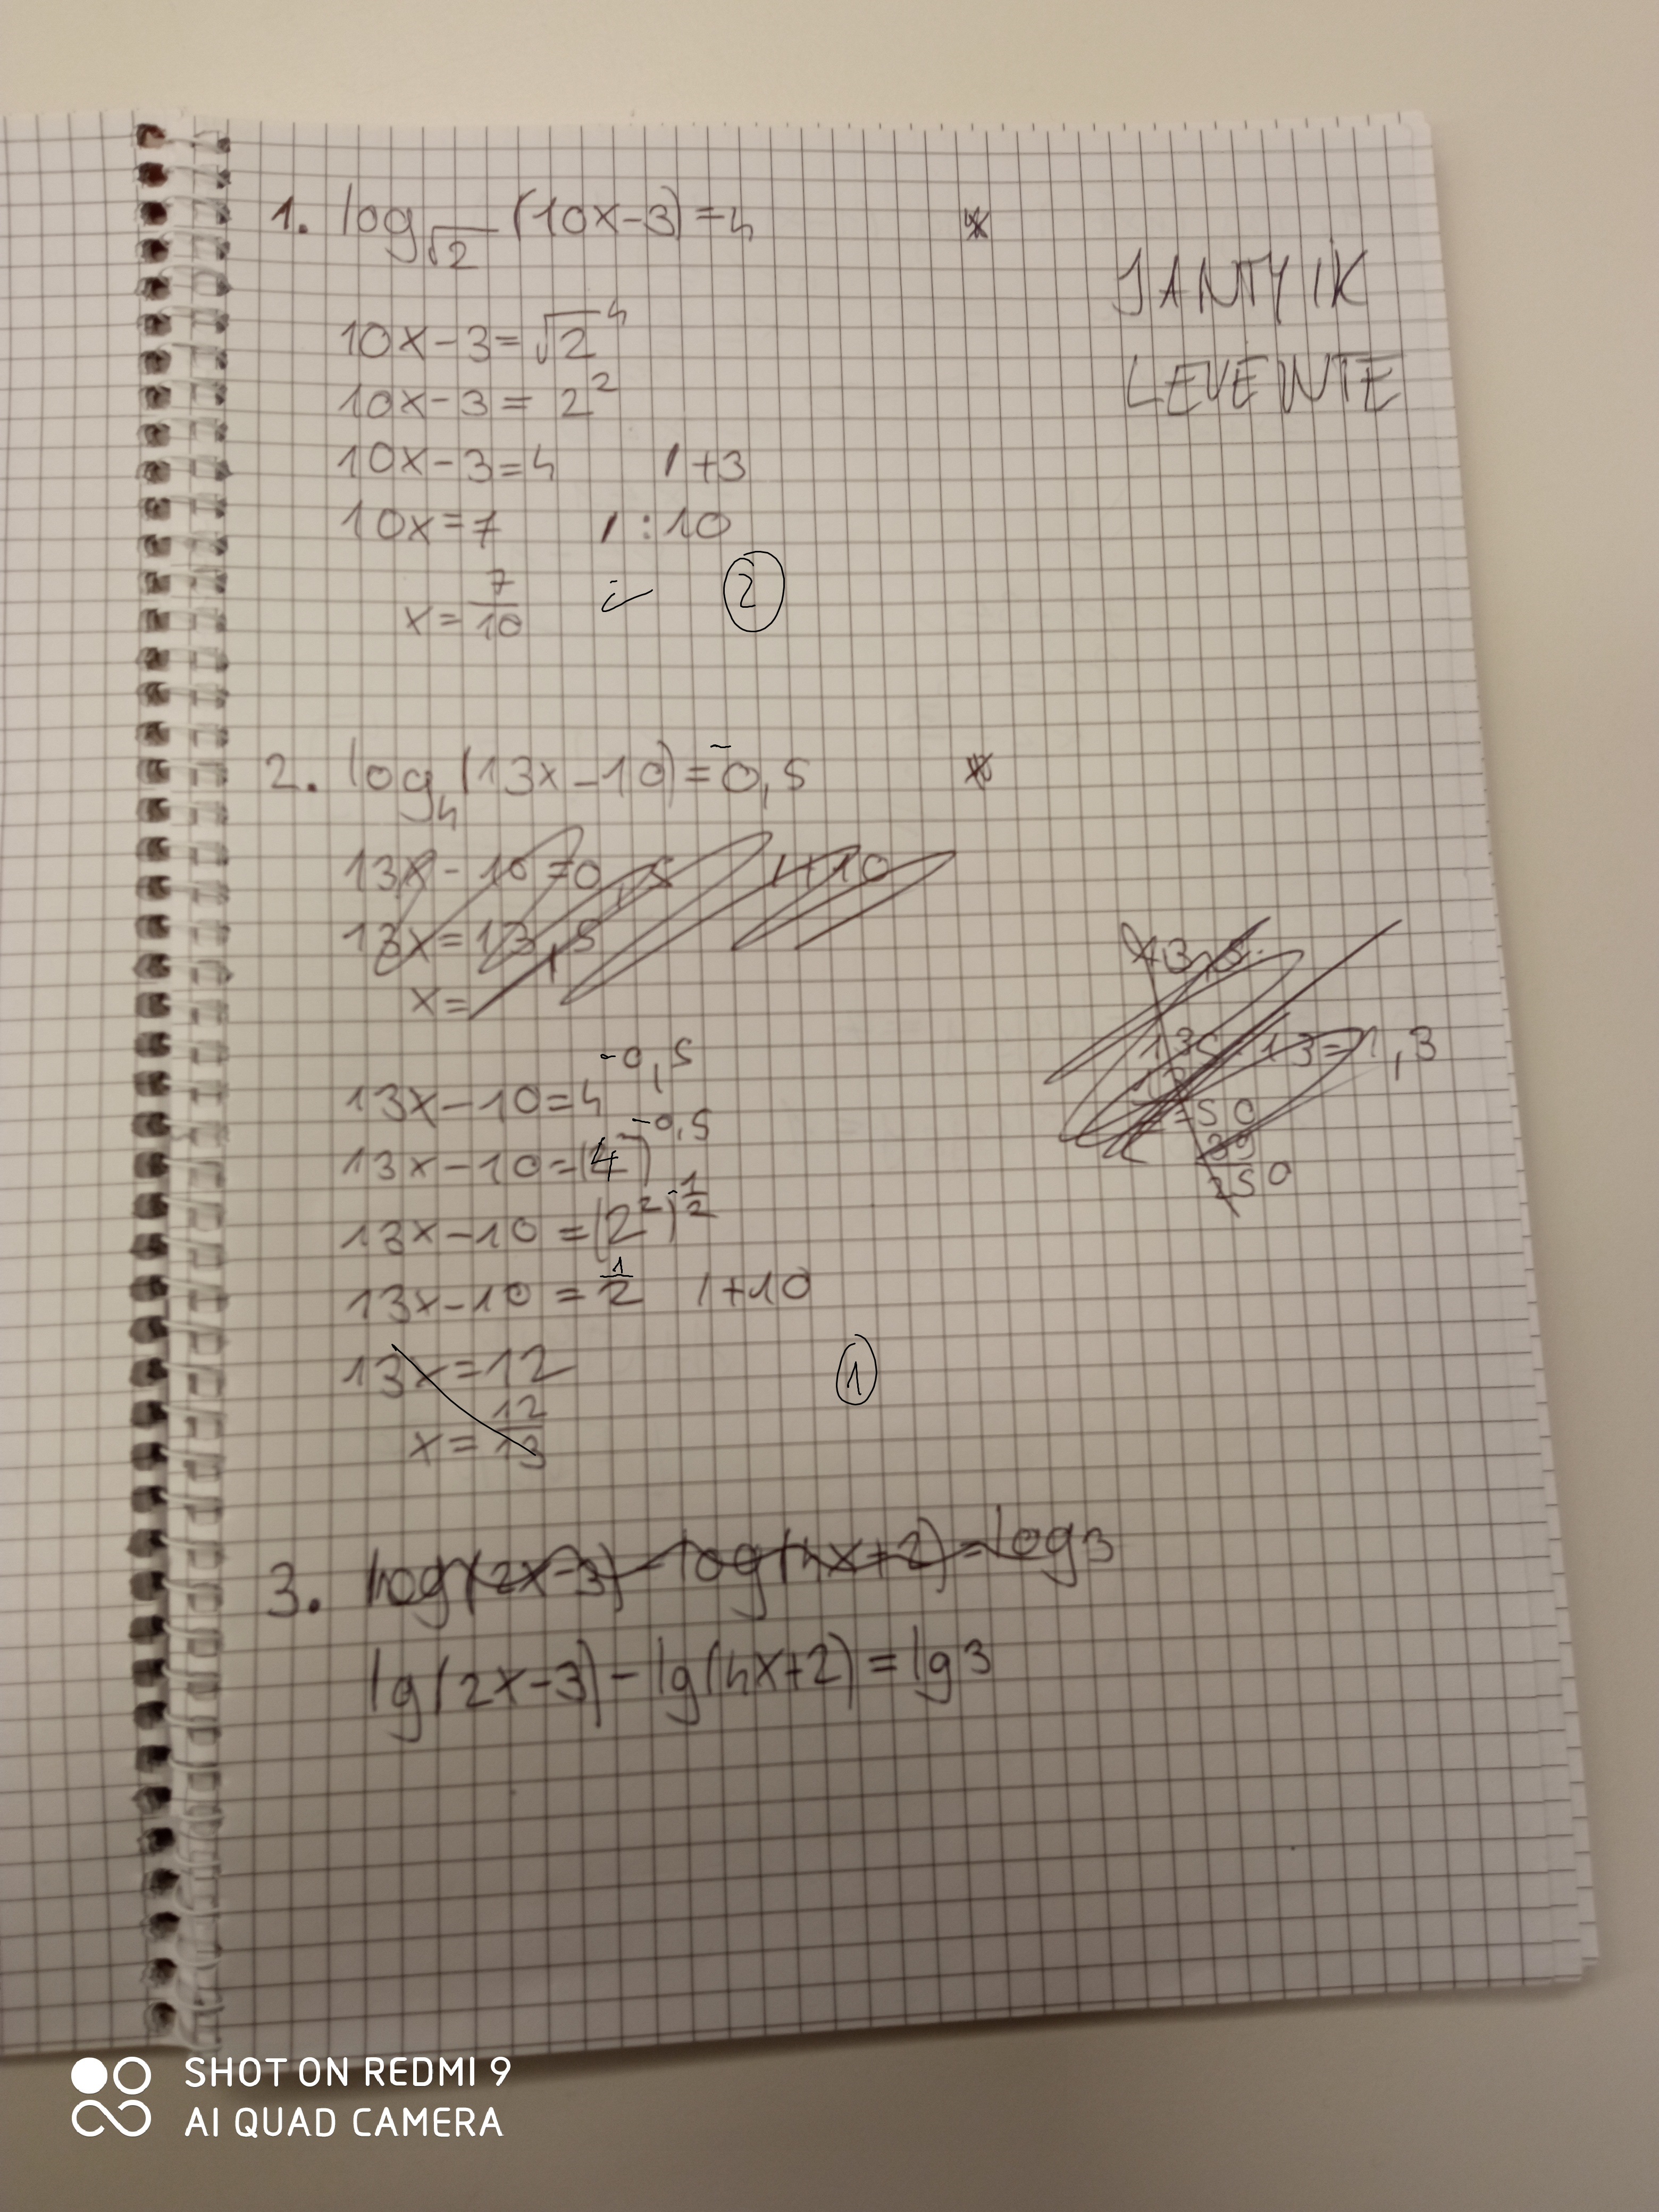 1. log√2 (10x-3)=4 *
JANTYIK
LEVENTE
10x-3=√2⁴
10x-3= 2²
10x-3=4 /+3
10x=7 /:10
x=7/10 i 2
2. log₄(13x-10)=-0,5 *
13x-10=0,5 /+10
13x=13,5
x=
13,5:
135:13=1,3
13
=50
39
250
13x-10=4^-0,5
13x-10=(4)^-0,5
13x-10=(2²)^-1/2
13x-10=1/2 /+10
13x=12 1
x=12/13
3. log(2x-3)-log(4x+2)=log3
lg(2x-3)-lg(4x+2)=lg3
SHOT ON REDMI 9
AI QUAD CAMERA